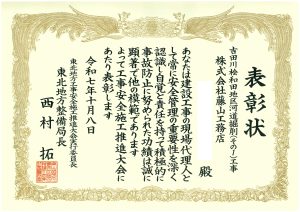 表彰状
吉田川桧和田地区河道掘削(その1)工事
株式会社藤山工務店
殿
あなたは建設工事の現場代理人と
して常に安全管理の重要性を深く
認識し自覚と責任を持って積極的に
事故防止に努められた功績は誠に
顕著で他の模範であります
よって工事安全施工推進大会に
あたり表彰します
令和七年十月八日
東北地方工事安全施工推進大会実行委員長
東北地方整備局長
西村 拓